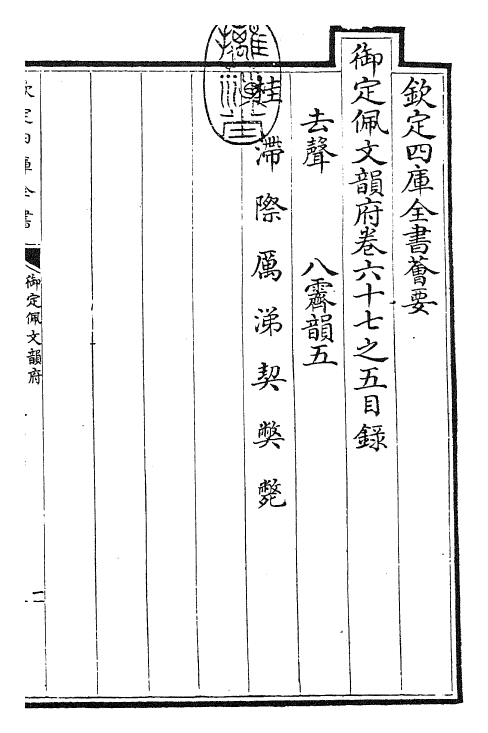 欽定四庫全書薈要
御定佩文韻府卷六十七之五目錄
去聲 八霽韻五
桂 滯 際 厲 涕 契 獘 斃
欽定四庫全書
御定佩文韻府
一